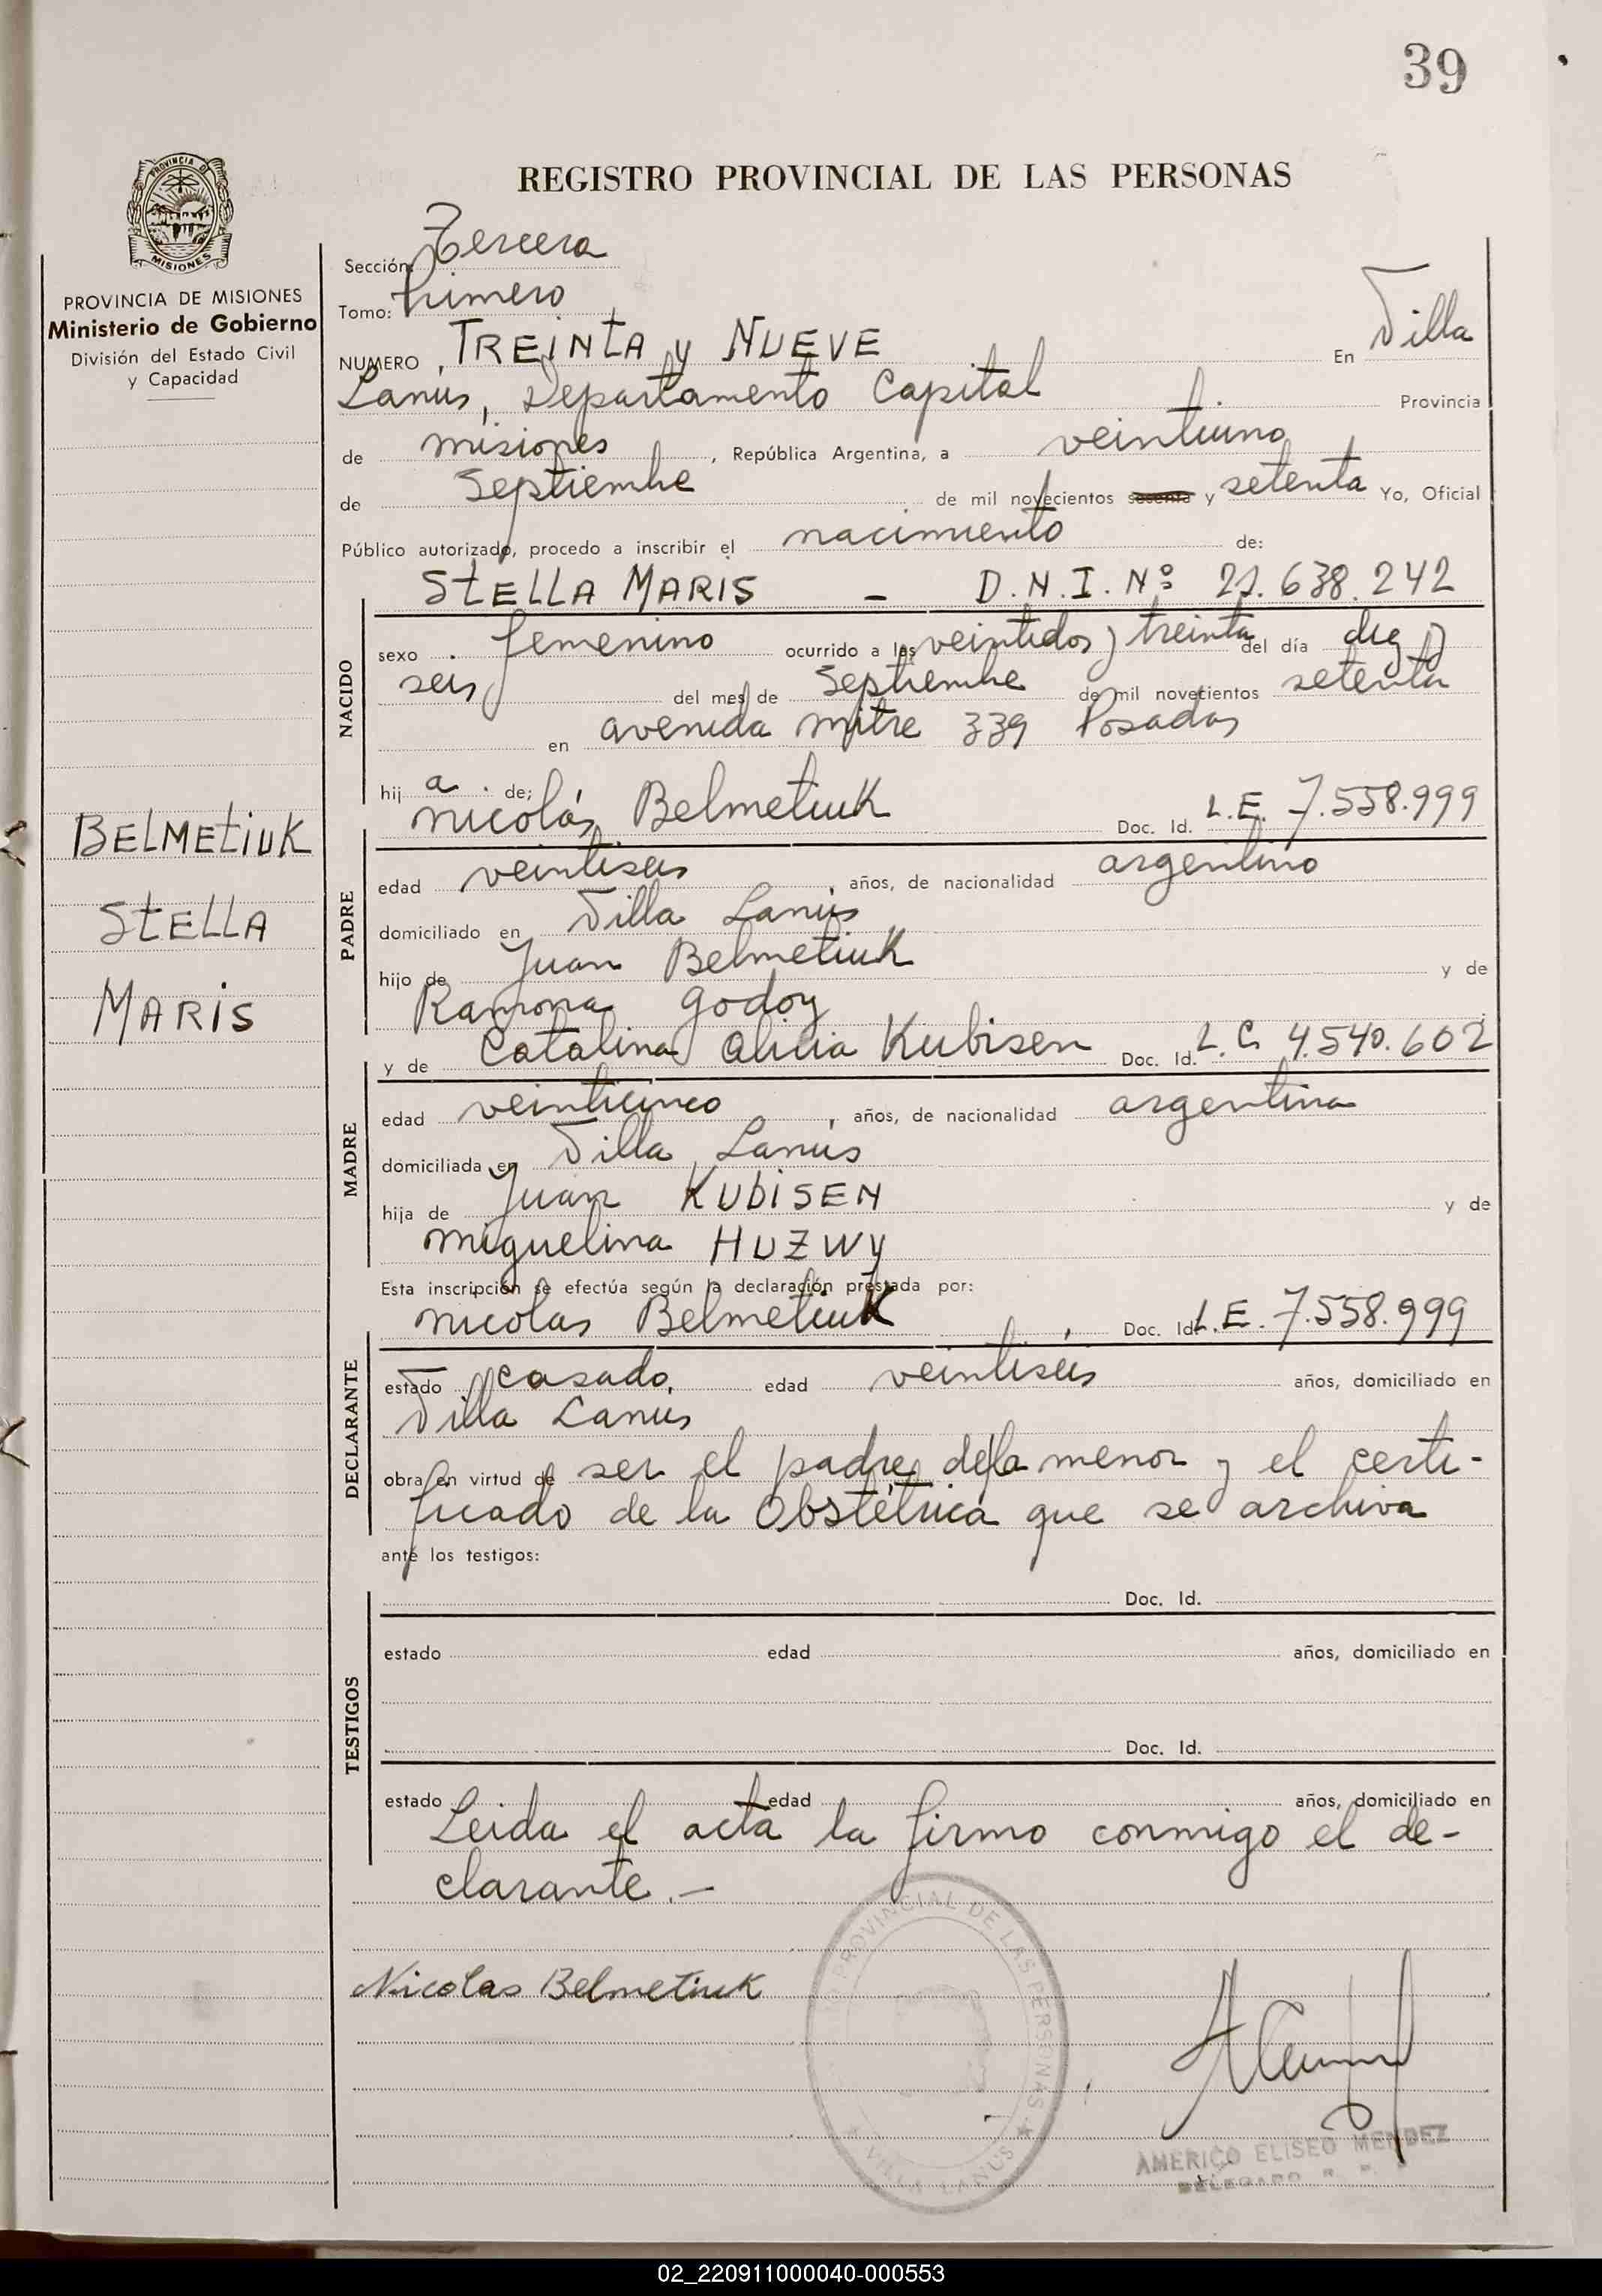 39
REGISTRO PROVINCIAL DE LAS PERSONAS
PROVINCIA DE MISIONES
PROVINCIA DE MISIONES
Ministerio de Gobierno
División del Estado Civil
y Capacidad
BELMETIUK
STELLA
MARIS
Sección: Tercera
Tomo: Primero
NUMERO TREINTA y NUEVE En Villa
Lanús, Departamento Capital Provincia
de misiones, República Argentina, a veintiuno
de Septiembre de mil novecientos sesenta y setenta Yo, Oficial
Público autorizado, procedo a inscribir el nacimiento de:
STELLA MARIS - D.N.I. Nº 21.638.242
NACIDO
sexo femenino ocurrido a las veintidos y treinta del día diez y
seis del mes de Septiembre de mil novecientos setenta
en avenida mitre 339 Posadas
hij a de:
nicolás Belmetiuk Doc. Id. L.E. 7.558.999
PADRE
edad veintiseis, años, de nacionalidad argentino
domiciliado en Villa Lanús
hijo de Juan Belmetiuk y de
Ramona Godoy
y de Catalina Alicia Kubisen Doc. Id. L.C. 4.540.602
MADRE
edad veinticinco, años, de nacionalidad argentina
domiciliada en Villa Lanús
hija de Juan KUBISEN y de
miguelina HUZWY
Esta inscripción se efectúa según la declaración prestada por:
nicolas Belmetiuk Doc. Id. L.E. 7.558.999
DECLARANTE
estado casado, edad veintiseis años, domiciliado en
Villa Lanús
obra en virtud de ser el padre de la menor y el certi-
ficado de la Obstétrica que se archiva
ante los testigos:
TESTIGOS
Doc. Id.
estado edad años, domiciliado en
Doc. Id.
estado edad años, domiciliado en
Leida el acta la firmo conmigo el de-
clarante.-
Nicolas Belmetiuk
PROVINCIAL DE LAS PERSONAS
★ VILLA LANUS ★
AMERICO ELISEO MENDEZ
DELEGADO R. P.
02_220911000040-000553